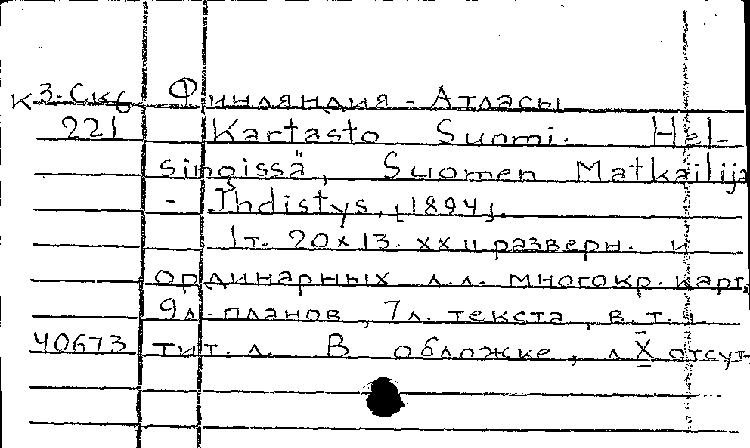 К 3-Ск6 Финляндия - Атласы
221 Kartasto Suomi. Hel-
singissä, Suomen Matkailija
- Ihdistys, [1894].
1 т. 20 x 13. XXII разверн. и
ординарных л.л. многокр. карт,
9 л. планов, 7 л. текста, в.т.ч.
40673 тит. л. В обложке, л X отсут